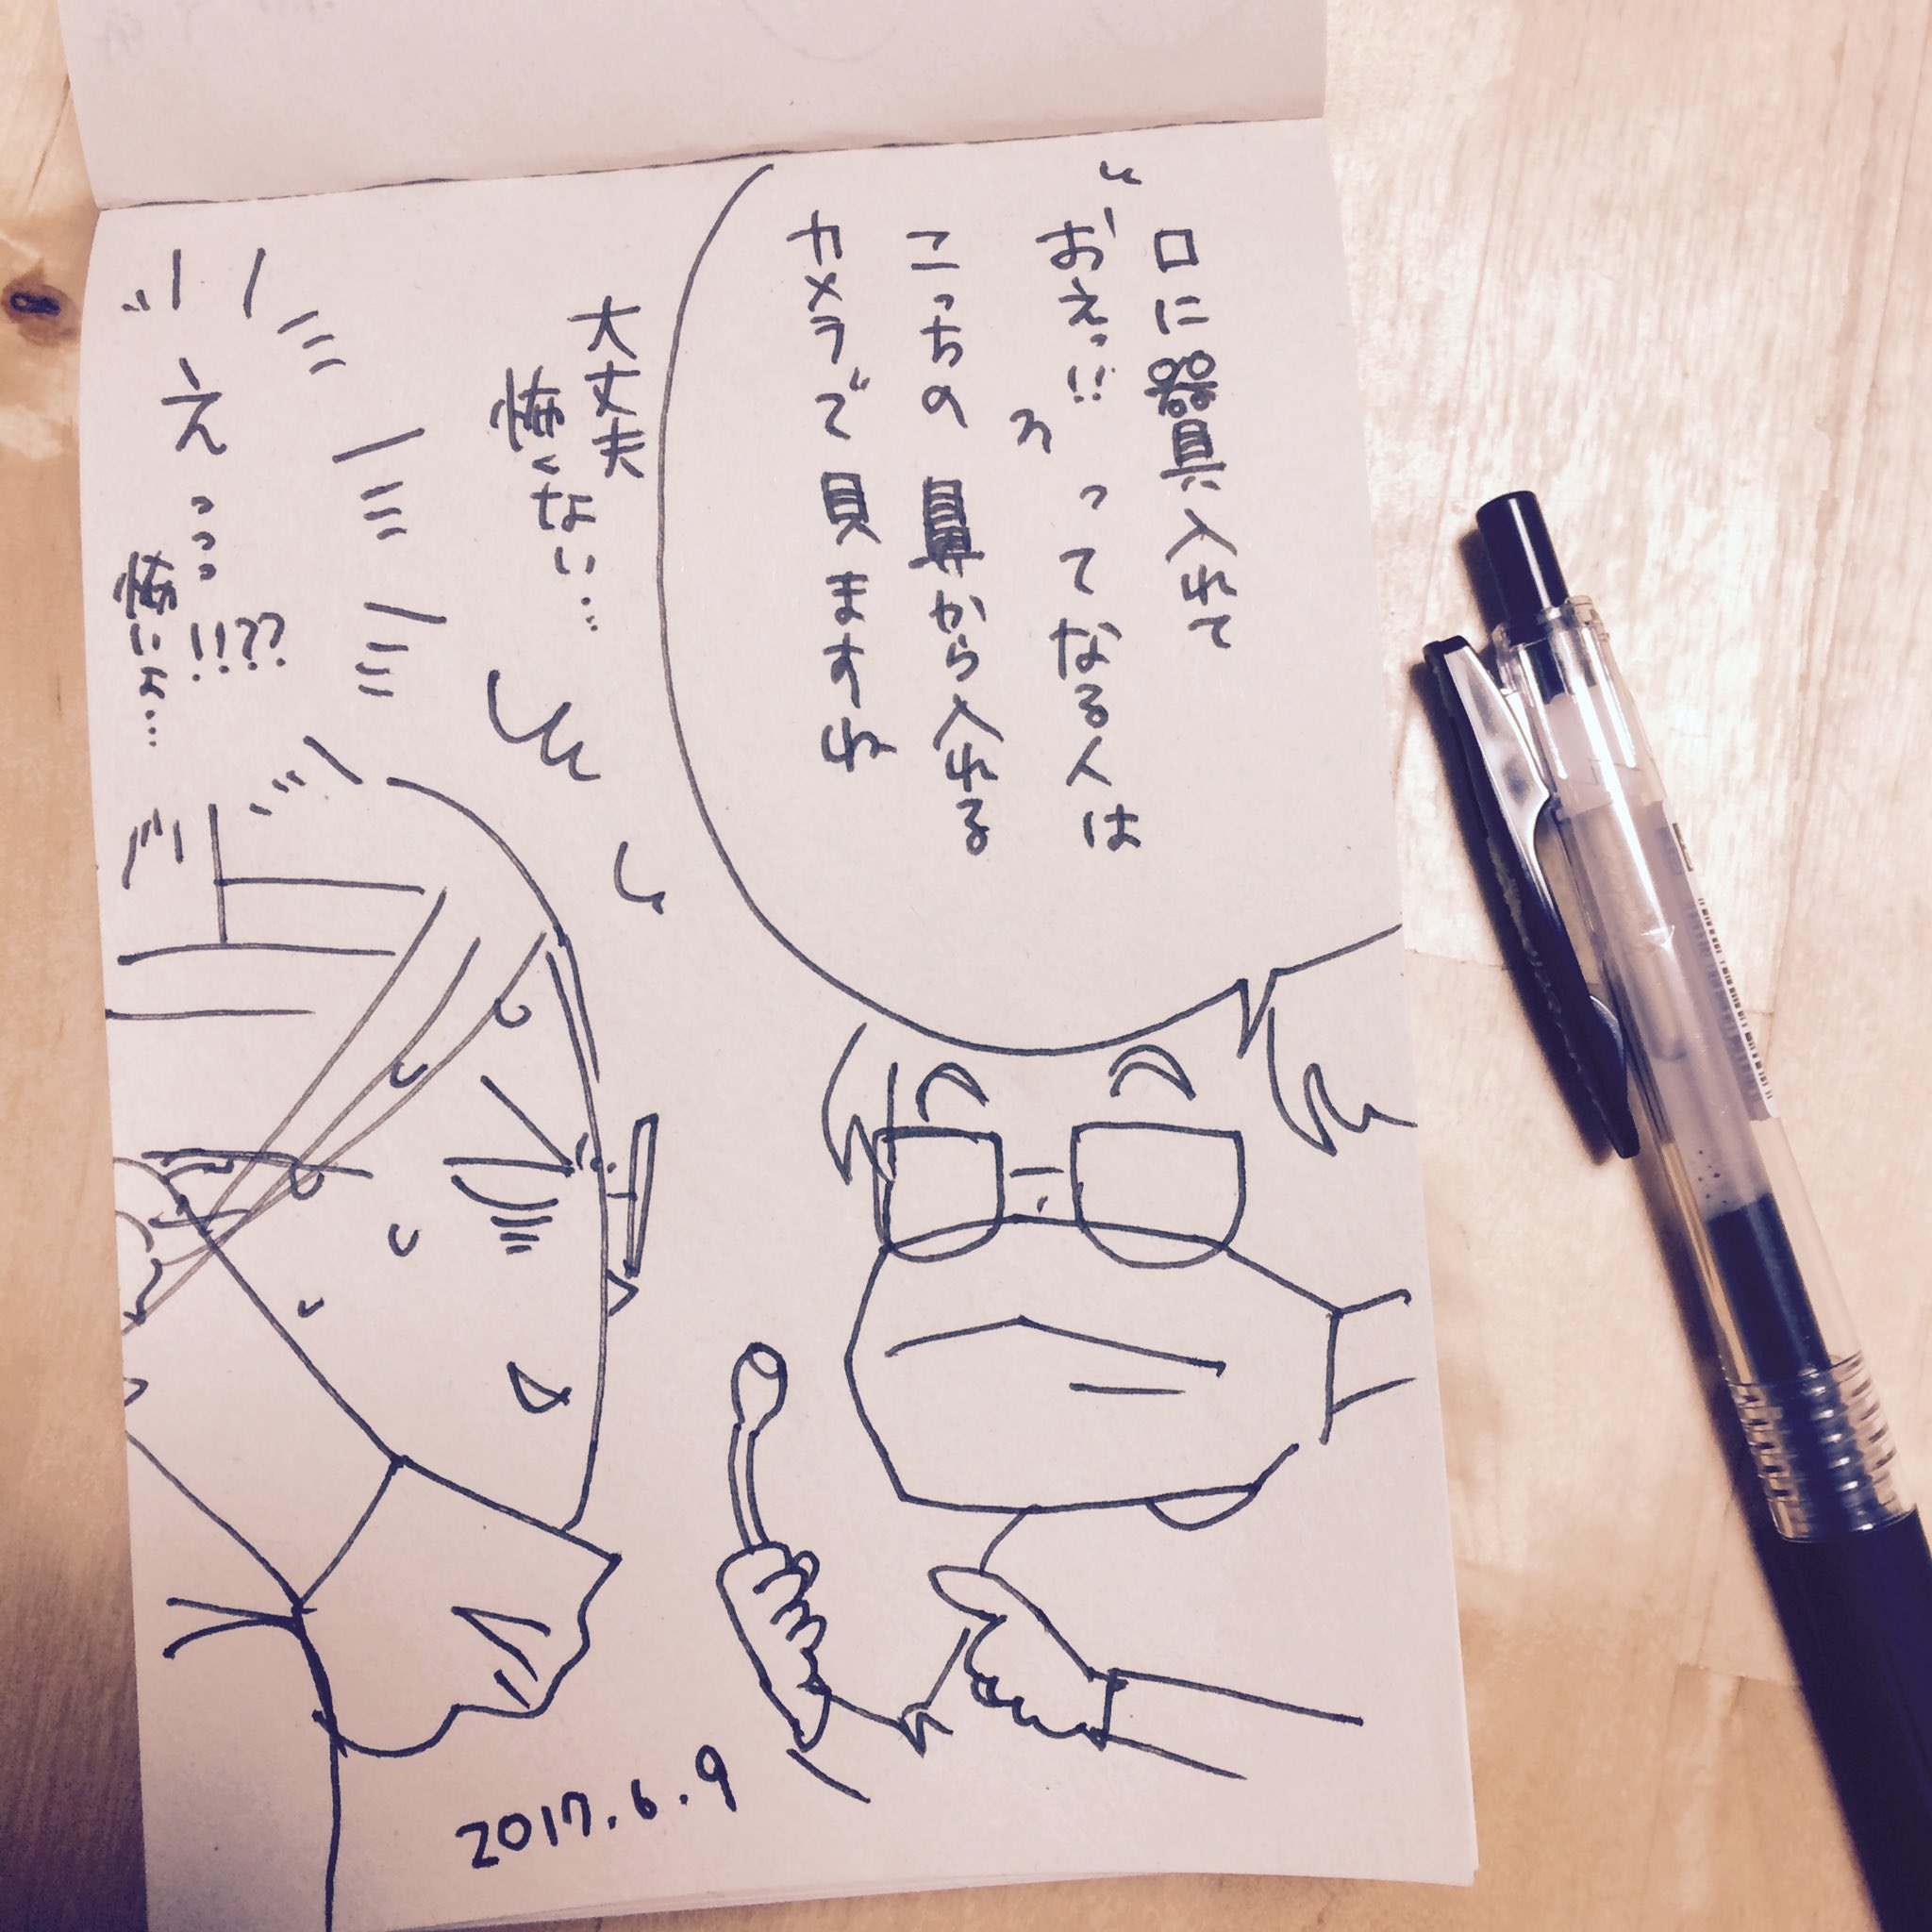 口に器具入れて
“おえっ!!”ってなる人は
こっちの鼻から入れる
カメラで見ますね
大丈夫
怖くない…
えっっっ!!??
怖いよ…
2017.6.9